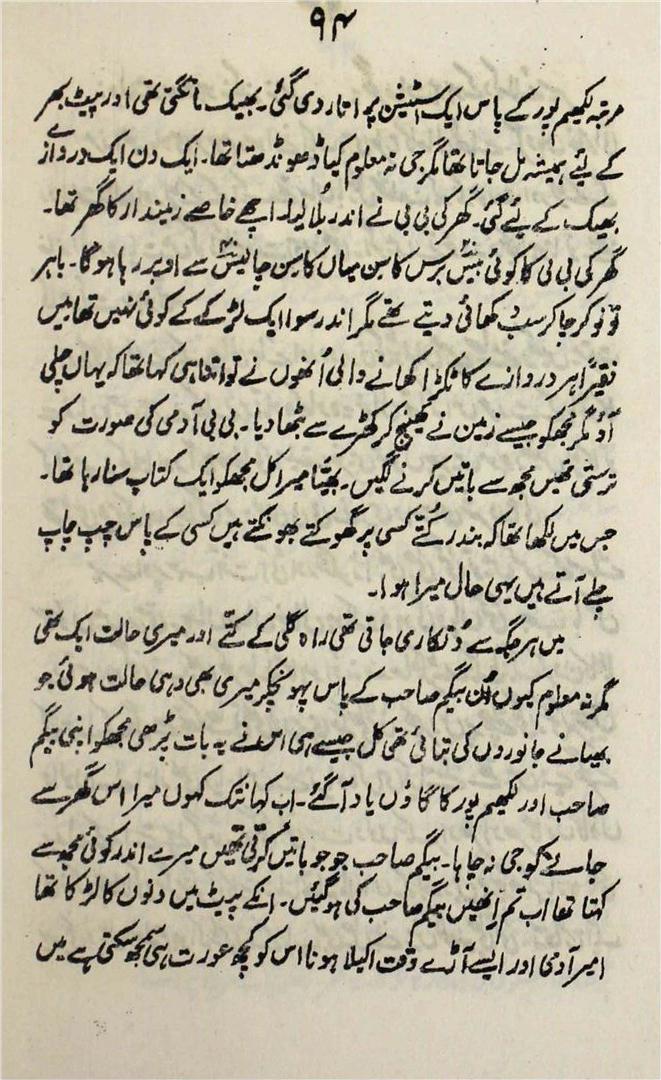 ۹۴
مرتبہ لکھیم پور کے پاس ایک اسٹیشن پر اتار دی گئی۔ بھیک مانگتی تھی اور پیٹ بھر
کے لئے ہمیشہ مل جاتا تھا مگر جی نہ معلوم کیا ڈھونڈھتا تھا۔ ایک دن ایک دروازے
بھیک کے لئے گئی۔ گھر کی بی بی نے اندر بُلا لیا۔ اچھے خاصے زمیندار کا گھر تھا۔
گھر کی بی بی کا کوئی بیسؔ برس کا سن میاں کا سن چالیسؔ سے اوپر رہا ہوگا۔ باہر
تو نوکر چاکر سب دکھائی دیتے تھے مگر اندر سوا ایک لڑکے کے کوئی نہیں تھا میں
فقیر اہر دروازے کا ٹکڑا کھانے والی اُنھوں نے تو اتنا ہی کہا تھا کہ یہاں چلی
آؤ مگر مجھکو جیسے زمین نے کھینچ کر کھڑے سے بٹھا دیا۔ بی بی آدمی کی صورت کو
ترستی تھیں مجھ سے باتیں کرنے لگیں۔ بھیّا میرا کل مجھکو ایک کتاب سنا رہا تھا۔
جس میں لکھا تھا کہ بندر کُتے کسی پر گھوکتے بھونکتے ہیں کسی کے پاس چپ چاپ
چلے آتے ہیں یہی حال میرا ہوا۔
میں ہر جگہ سے دُتکاری جاتی تھی راہ گلی کے کتے اور میری حالت ایک تھی
مگر نہ معلوم کیوں اُن بیگم صاحب کے پاس پہونچکر میری بھی وہی حالت ہوئی جو
بھیا نے جانوروں کی بتائی تھی کل جیسے ہی اس نے یہ بات پڑھی مجھکو اپنی بیگم
صاحب اور لکھیم پور کا گاؤں یاد آ گئے۔ اب کہانتک کہوں میرا اس گھر سے
جانے کو جی نہ چاہا۔ بیگم صاحب جو جو باتیں کرتی تھیں میرے اندر کوئی مجھ سے
کہتا تھا اب تم اِنھیں بیگم صاحب کی ہو گئیں۔ انکے پیٹ میں دنوں کا لڑکا تھا
امیر آدمی اور ایسے آڑے وقت اکیلا ہونا اس کو کچھ عورت ہی سمجھ سکتی ہے میں